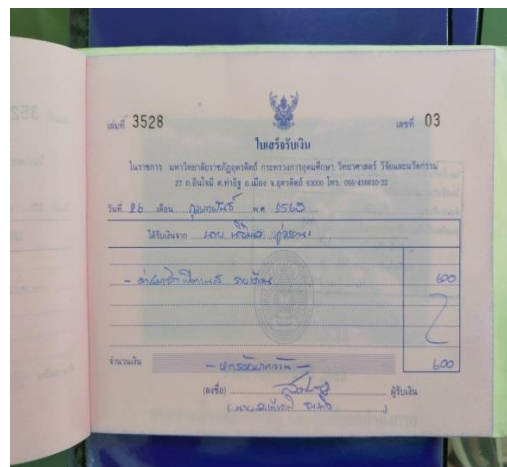 เล่มที่ 3528
เลขที่ 03
ใบเสร็จรับเงิน
ในราชการ มหาวิทยาลัยราชภัฏอุตรดิตถ์ กระทรวงการอุดมศึกษา วิทยาศาสตร์ วิจัยและนวัตกรรม
27 ถ.อินใจมี ต.ท่าอิฐ อ.เมือง จ.อุตรดิตถ์ 53000 โทร. 055-416610-32
วันที่ 26 เดือน กุมภาพันธ์ พ.ศ. 2563
ได้รับเงินจาก นาย
- ค่าสมาชิกฟิตเนส รายเดือน 600
จำนวนเงิน - หกร้อยบาทถ้วน - 600
(ลงชื่อ) ผู้รับเงิน